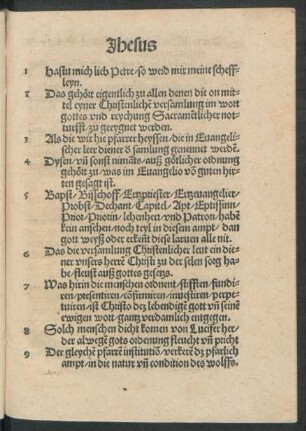 Jhesus
1 Hastu mich lieb Petre/so weid mir meine scheff-
leyn.
2 Das gehört eigentlich zu allen denen die on mit
tel eyner Christenlichē versamlung im wort
gottes vnd reychung Sacramētlicher not-
turfft zu geeygnet werden.
3 Als die wir hie pfarrer heyssen/die in Euangeli-
scher leer diener ö samlung genennet werdē.
4 Dysen/vn̄ sonst nimāts/auß götlicher ordnung
gehört zu/was im Euangelio vō guten hirten
gesagt ist.
5 Bapst/Bisschoff/Ertzpriester/Ertzeuangelier/
Probst/Dechant/Capitel/Apt/Eptissinn/
Prior/Priorin/lehenherr vnd Patron/habē
kein ansehen/noch teyl in diesem ampt/dan
gott weyß oder erkēt diese laruen alle nit.
6 Das die versamlung Christenlicher leut ein die-
ner vnsers herrē Christi zu der selen sorg ha-
be/fleust auß gottes gesetzs.
7 Was hirin die menschen ordnent/stifften/fundi-
ren/presentiren/cōfirmiren/inuestiren/perpe-
tuiren/ist Christo dez lebendigē gott vn̄ seinē
ewigen wort/gantz verdamlich entgegen.
8 Solch menschen dicht komen von Lucifer her/
der alwegē gots ordnung fleucht vn̄ pricht
9 Der gleychē pfarrē institutiō/verkerē dz pfarlich
ampt/in die natur vn̄ condition des wolffs.